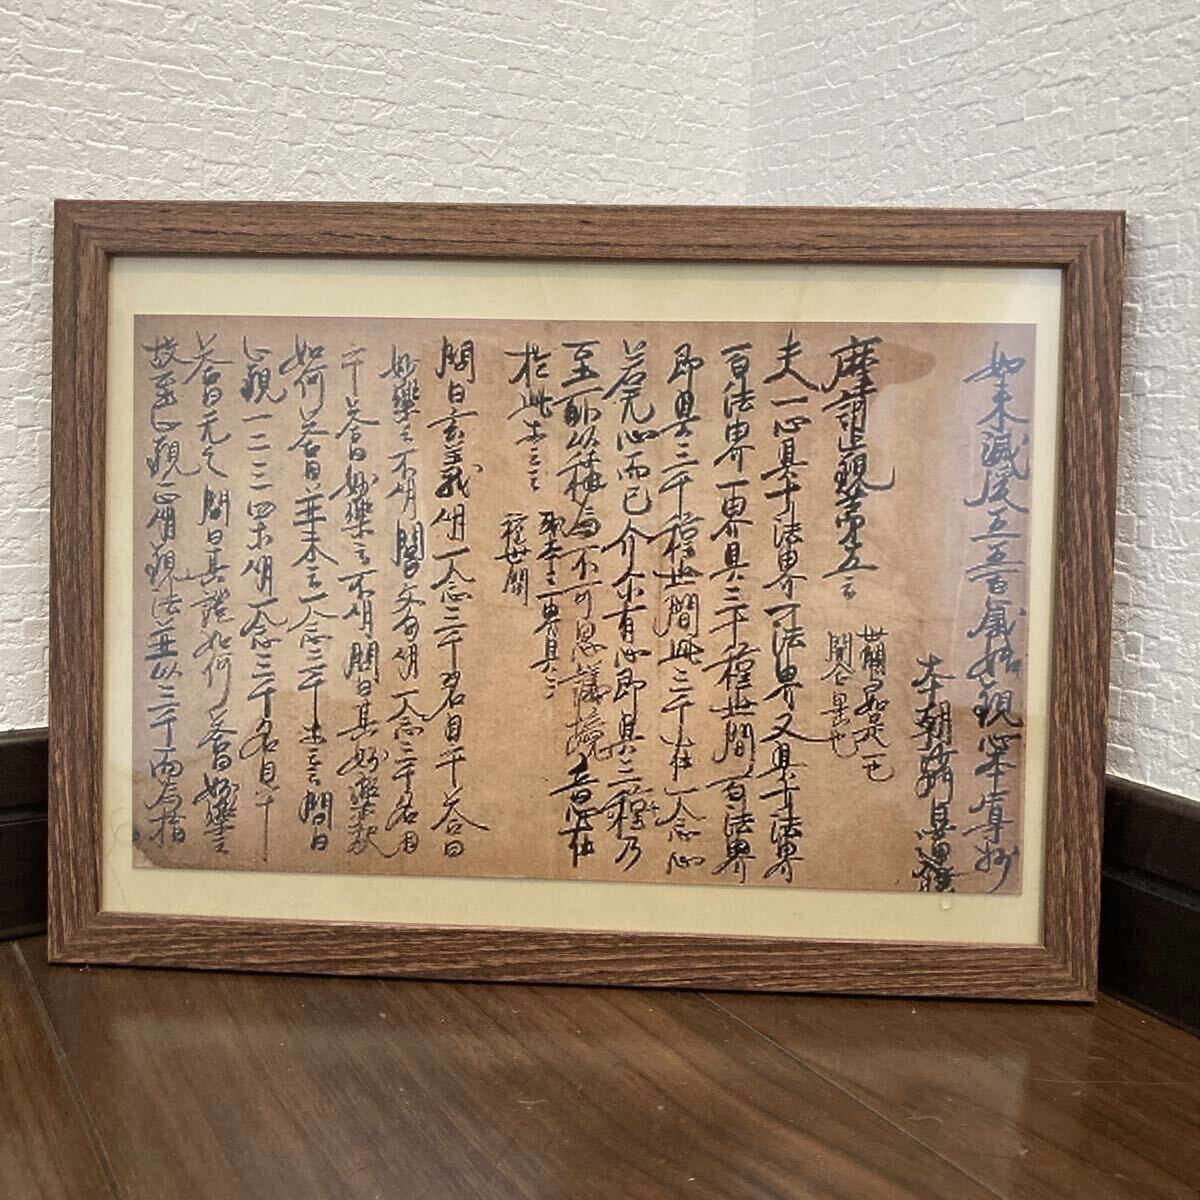 如来滅後五五百歳始観心本尊抄
本朝沙門日蓮撰
摩訶止観第五云
世間与如是一也
開合異也
夫一心具十法界一法界又具十法界
百法界一界具三十種世間百法界
即具三千種世間此三千在一念心
若无心而已介尓有心即具三千乃
至所以称為不可思議境意在
於此等云云
或本云一界具三
種世間
問曰玄義明一念三千名目乎答曰
妙楽云不明問曰文句明一念三千名目
乎答曰妙楽云不明問曰其妙楽釈
如何答曰並未云一念三千等云云問曰
止観一二三四等明一念三千名目乎
答曰无之問曰其證如何答曰妙楽云
故至止観正明観法並以三千而為指